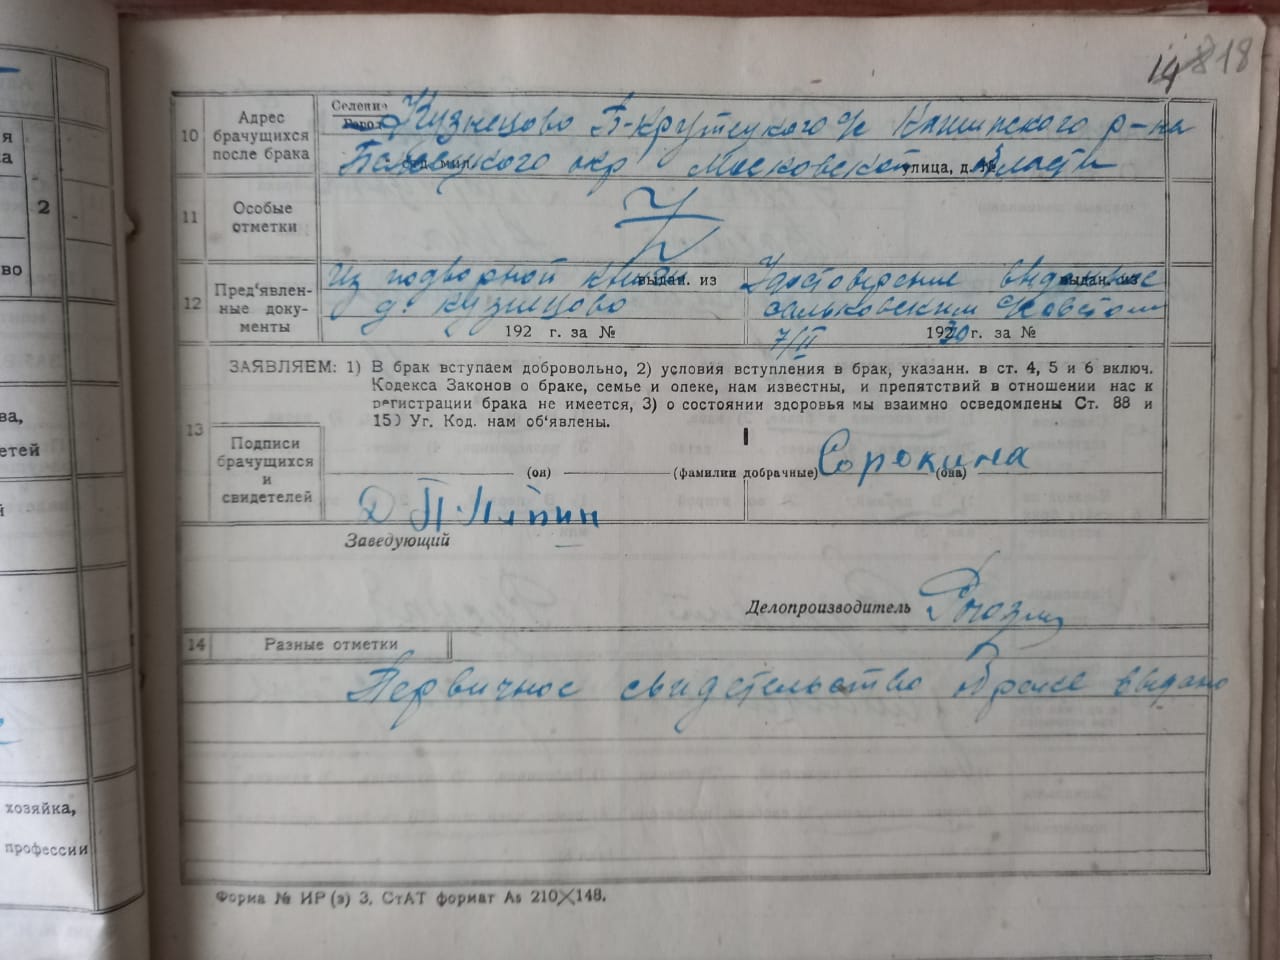 14 8 18
10
Адрес брачущихся после брака
Селение
Город
Кузнецово Б-Крутецкого с/с Кашинского р-на
Бежецкого окр Московской области
улица, д. №
11
Особые отметки
12
Пред'явленные документы
Из подворной книги
выдан. из
д. Кузнецово
192 г. за №
Удостоверение выданное
выдан. из
сальковским Советом
7/II 1930 г. за №
13
ЗАЯВЛЯЕМ: 1) В брак вступаем добровольно, 2) условия вступления в брак, указанн. в ст. 4, 5 и 6 включ.
Кодекса Законов о браке, семье и опеке, нам известны, и препятствий в отношении нас к
регистрации брака не имеется, 3) о состоянии здоровья мы взаимно осведомлены Ст. 88 и
150 Уг. Код. нам об'явлены.
Подписи
брачущихся
и
свидетелей
(он) (фамилии добрачные) Сорокина (она)
Заведующий
Делопроизводитель
14
Разные отметки
Первичное свидетельство о браке выдано
Форма № ИР (з) 3. СтАТ формат А5 210×148.
2
во
ва,
етей
хозяйка,
профессии